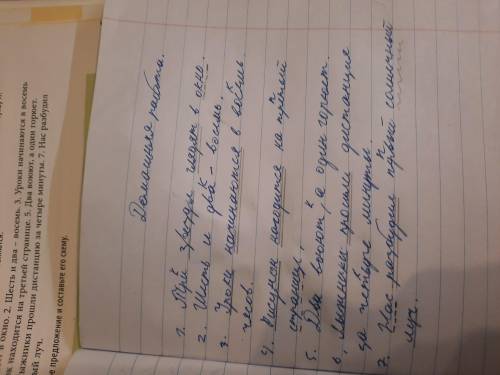 в окно. 2. Шесть и два – восемь. 3. Уроки начинаются в восемь
ок находится на третьей странице. 5. Два воюют, а один горюет.
ыжники прошли дистанцию за четыре минуты. 7. Нас разбудил
ый луч.
ое предложение и составьте его схему.
Домашняя работа.
1. Три звезды глядят в окно.
2. Шесть и два - восемь.
3. Уроки начинаются в восемь
часов.
4. Рисунок находится на третьей
странице.
5. Два воюют, а один горюет.
6. Лыжники прошли дистанцию
за четыре минуты.
7. Нас разбудил первый солнечный
луч.